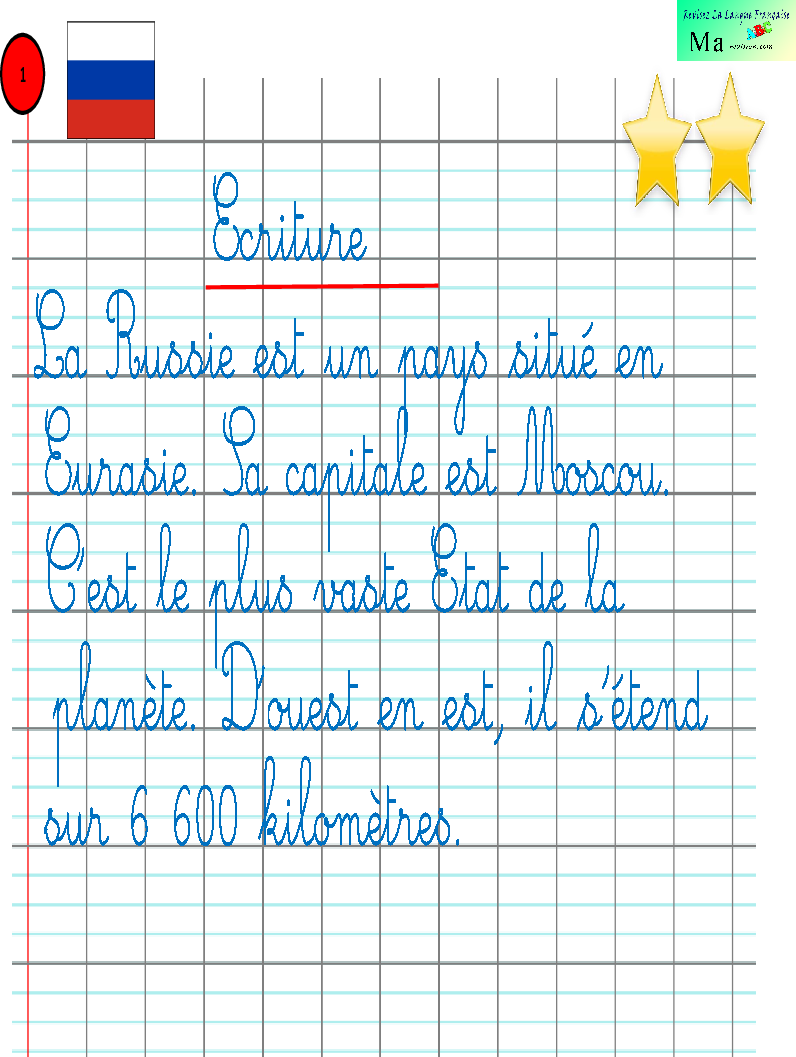 Revisez La Langue Française
1
Ma
Ecriture
La Russie est un pays situé en
Eurasie. Sa capitale est Moscou.
C'est le plus vaste Etat de la
planète. D'ouest en est, il s'étend
sur 6 600 kilomètres.